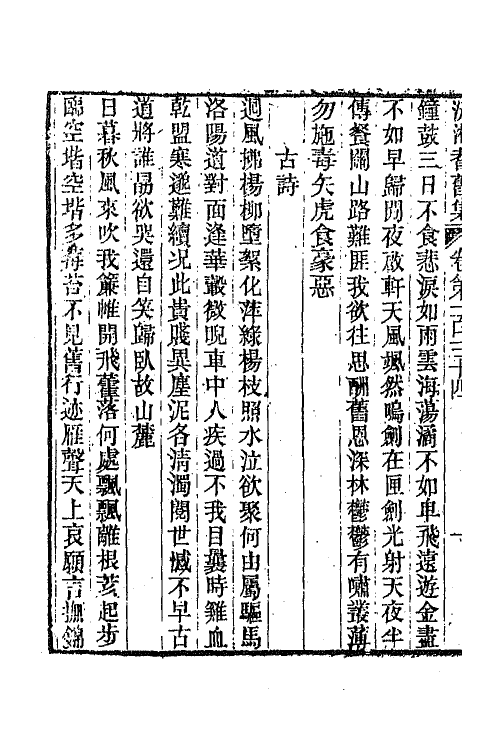 沅湘耆舊集 卷第一百三十四
鐘鼓三日不食悲淚如雨雲海蕩潏不如卑飛遠遊金盡
不如早歸閉夜啟軒天風颯然鳴劍在匣劍光射天夜半
傳餐關山路難匪我欲往思酬舊恩深林鬱鬱有嘯叢薄
勿施毒矢虎食豪惡
古詩
迴風拂楊柳墮絮化萍綠楊枝照水泣欲聚何由屬驅馬
洛陽道對面逢華轂微睨車中人疾過不我目曩時雞血
乾盟寒遂難續况此貴賤異塵泥各清濁閱世憾不早古
道將誰勗欲哭還自笑歸臥故山麓
日暮秋風來吹我簾帷開飛蘀落何處飄飄離根荄起步
臨空堦空堦多莓苔不見舊行迹雁聲天上哀願言撫錦